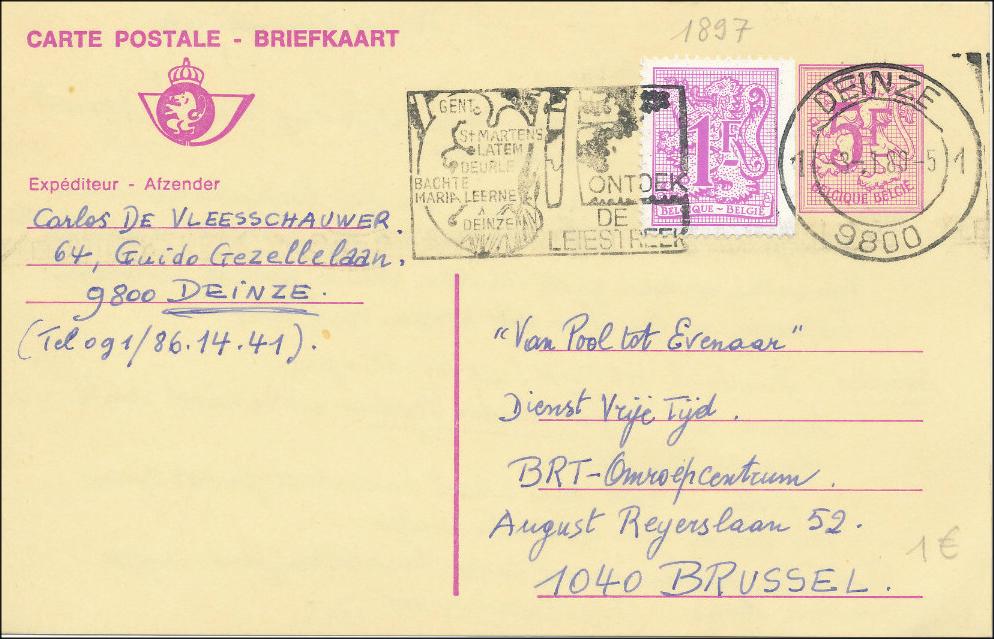 1897
CARTE POSTALE - BRIEFKAART
GENT
St MARTENS
LATEM
DEURLE
BACHTE
MARIA LEERNE
DEINZE
ONTDEK
DE
LEIESTREEK
1F
BELGIQUE - BELGIE
DEINZE
5F
BELGIQUE BELGIE
9800
Expéditeur - Afzender
Carlos DE VLEESSCHAUWER.
64, Guido Gezellelaan.
9800 DEINZE.
(Tel 091/86.14.41).
"Van Pool tot Evenaar"
Dienst Vrije Tijd.
BRT-Omroepcentrum.
August Reyerslaan 52.
1040 BRUSSEL.
1€